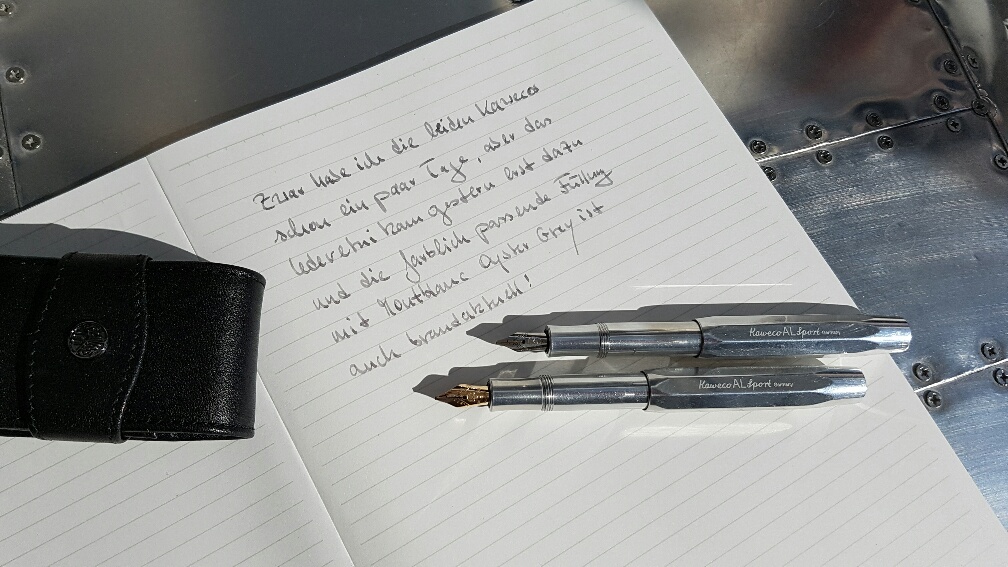 Zwar habe ich die beiden Kawecos
schon ein paar Tage, aber das
Lederetui kam gestern erst dazu
und die farblich passende Füllung
mit Montblanc Oyster Grey ist
auch brandaktuell!
Kaweco AL Sport Germany
Kaweco AL Sport Germany